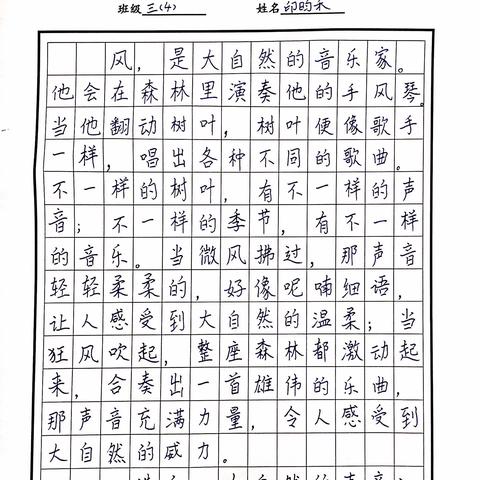 班级 三(4) 姓名 邱昀禾
风，是大自然的音乐家。
他会在森林里演奏他的手风琴。
当他翻动树叶，树叶便像歌手
一样，唱出各种不同的歌曲。
不一样的树叶，有不一样的声
音；不一样的季节，有不一样
的音乐。当微风拂过，那声音
轻轻柔柔的，好像呢喃细语，
让人感受到大自然的温柔；当
狂风吹起，整座森林都激动起
来，合奏出一首雄伟的乐曲，
那声音充满力量，令人感受到
大自然的威力。